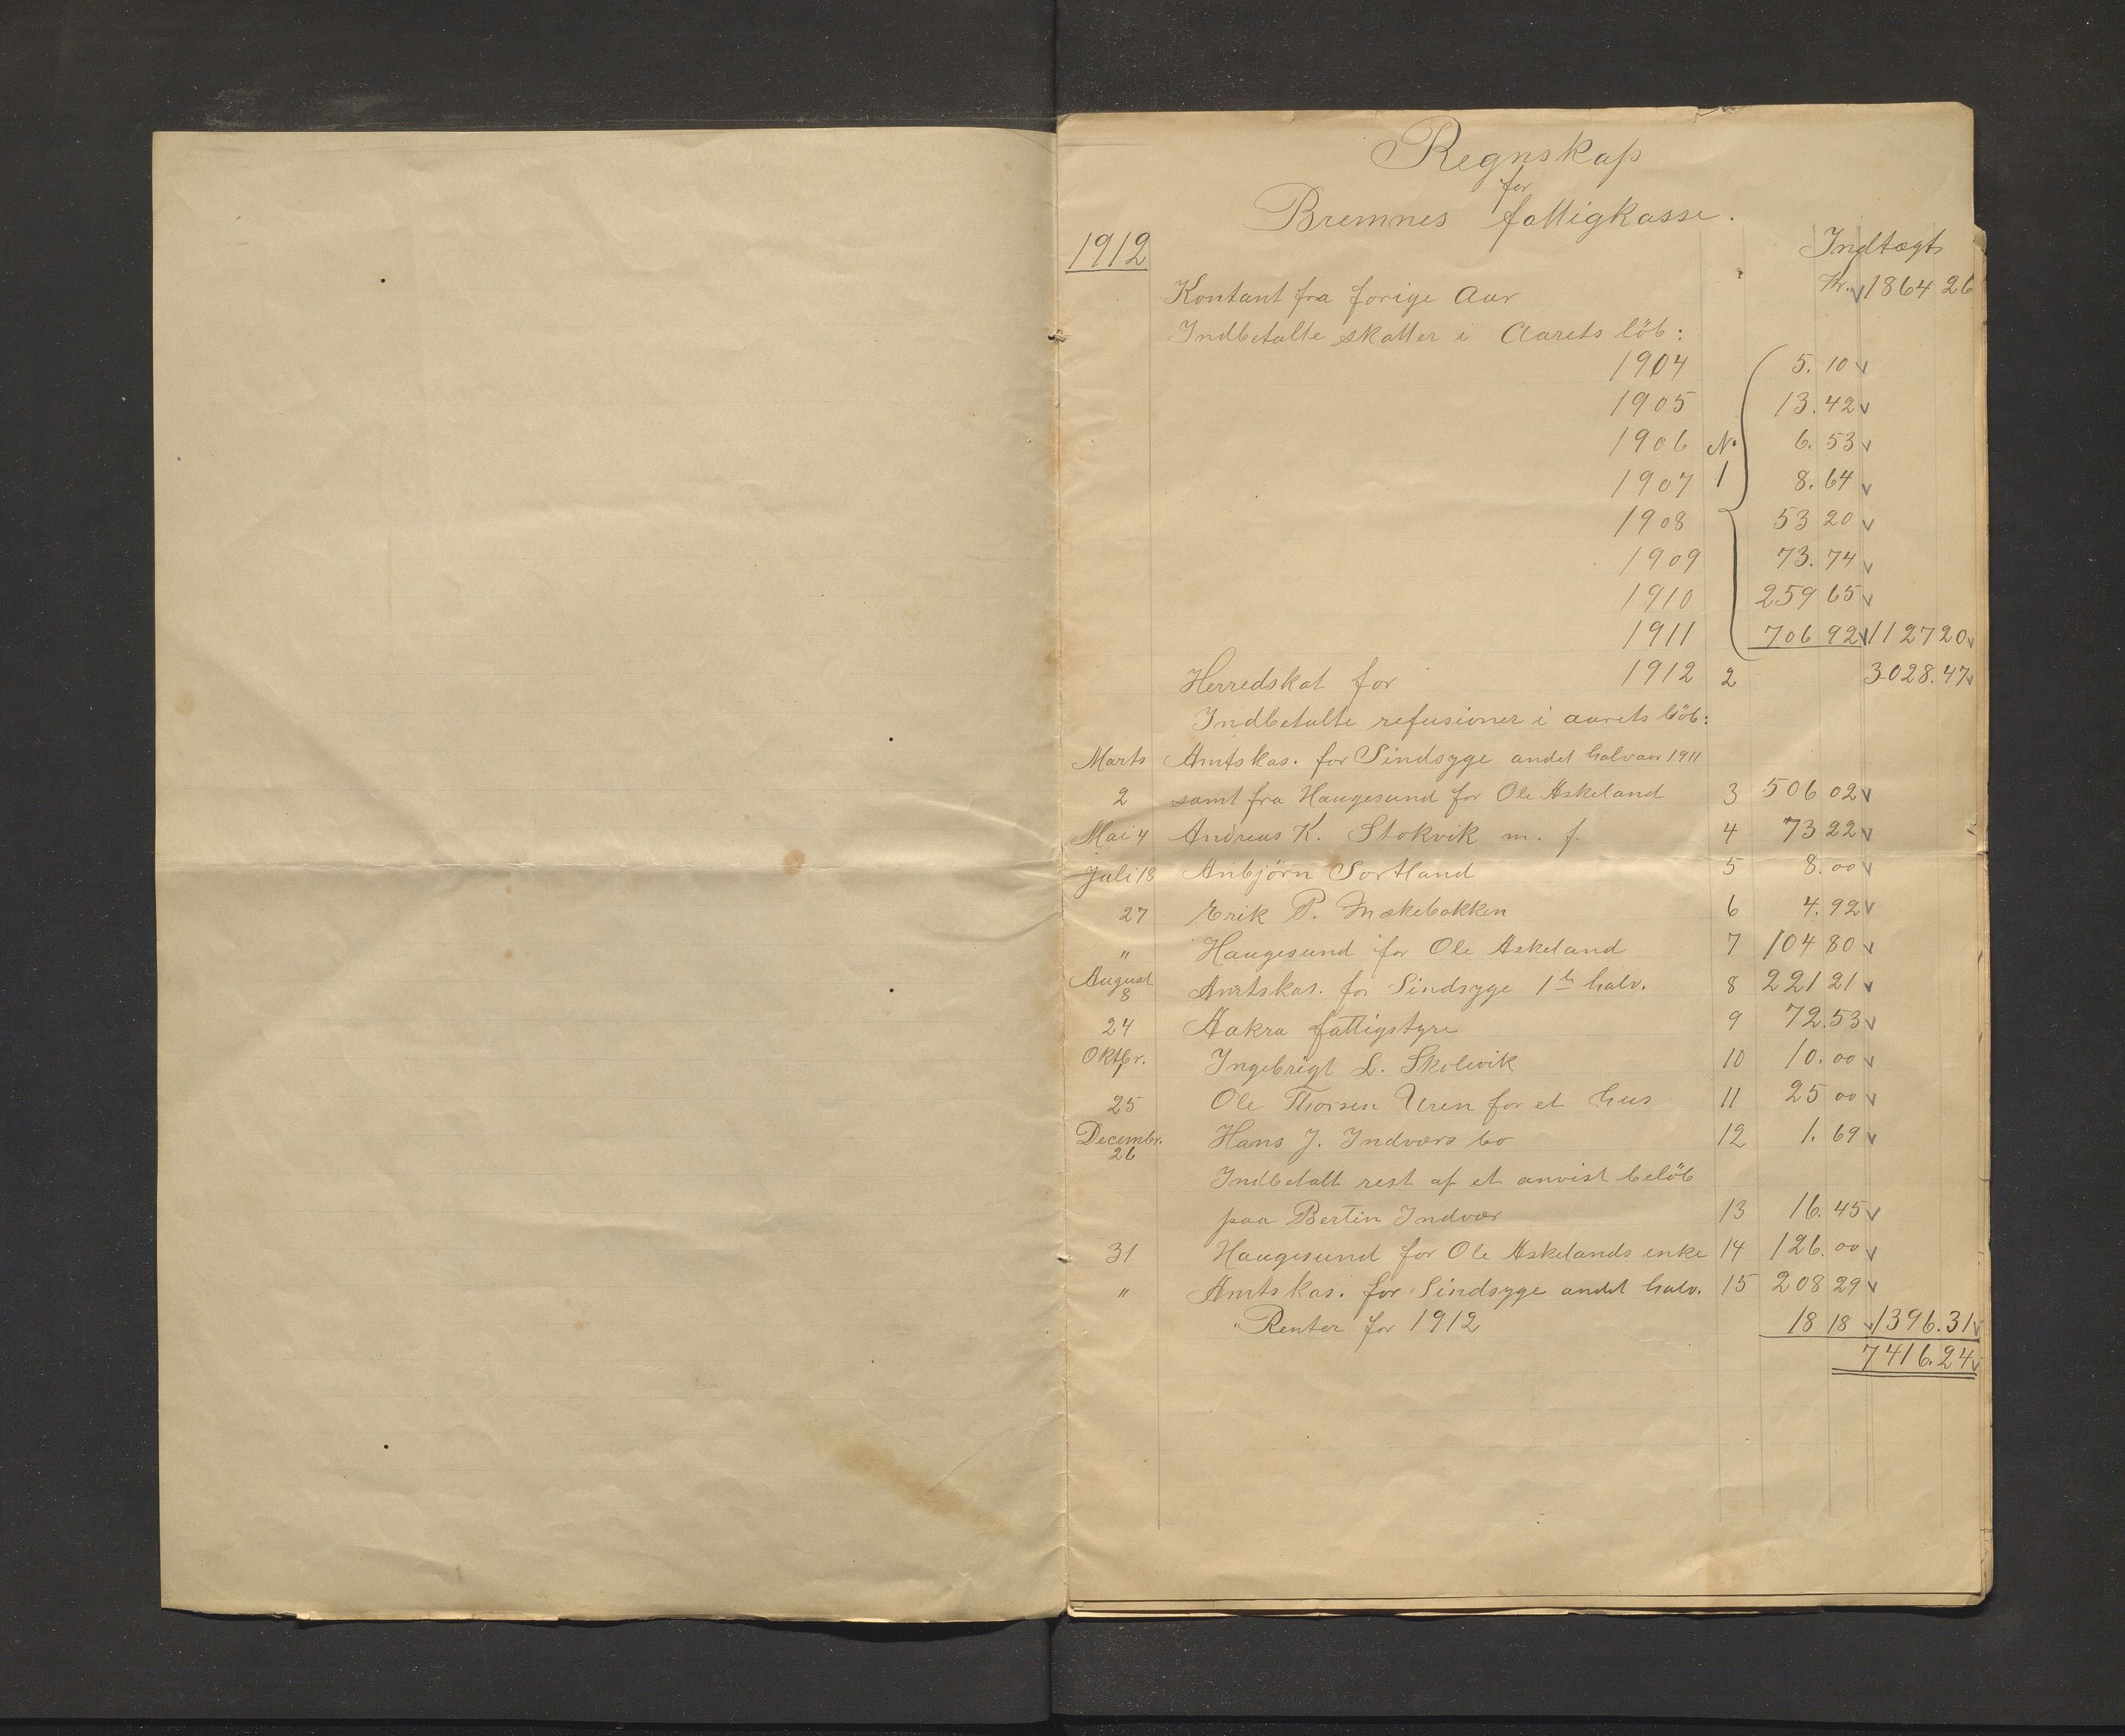 Regnskap
for
Bremnes fattigkasse.
1912 Indtægt
Kontant fra forige Aar Kr. 1864 26
Indbetalte skatter i Aarets löb:
1904 5.10
1905 13.42
1906 No 6.53
1907 1 8.64
1908 53 20
1909 73.74
1910 259 65
1911 706 92 1127 20
Herredskat for 1912 2 3028.47
Indbetalte refusioner i aarets löb:
Marts Amtskas. for Sindsyge andet halvaar 1911
2 samt fra Haugesund for Ole Askeland 3 506 02
Mai 4 Andreas K. Stokvik m. f. 4 73 22
Juli 18 Anbjørn Sortland 5 8.00
27 Erik P. 6 4.92
" Haugesund for Ole Askeland 7 104 80
August 8 Amtskas. for Sindsyge 1te halv. 8 221 21
24 Aakra fattigstyre 9 72.53
Oktbr. 1 Ingebrigt L. Skolevik 10 10.00
25 Ole Thorsen Uren for et hus 11 25 00
Decembr. 26 Hans J. Indværs bo 12 1.69
Indbetalt rest af et anvist belöb
paa Bertin Indvær 13 16.45
31 Haugesund for Ole Askelands enke 14 126.00
" Amtskas. for Sindsyge andet halv. 15 208 29
" Renter for 1912 18 18 1396.31
7416.24